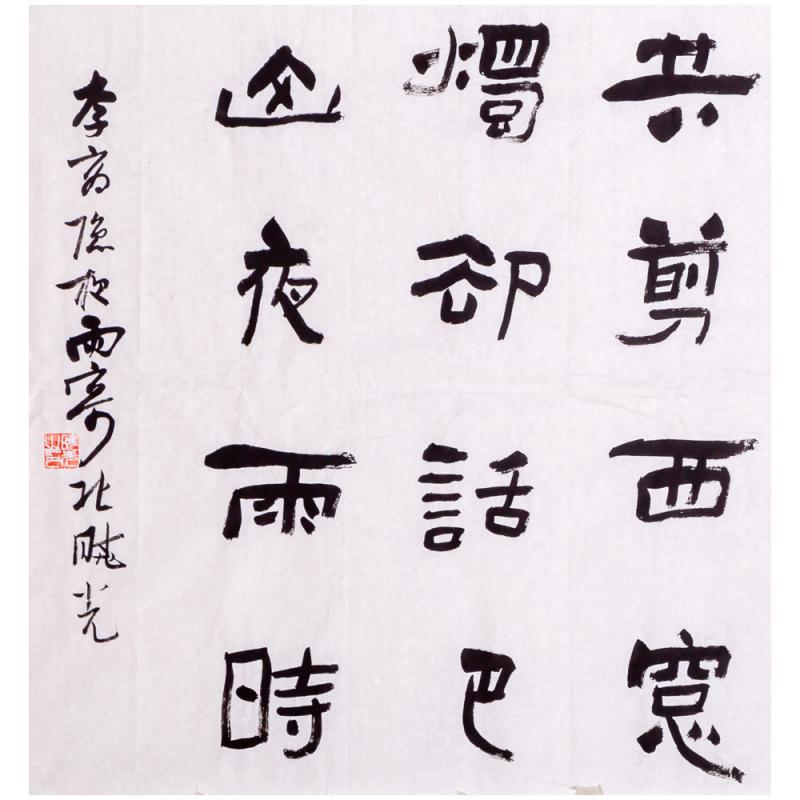 共剪西窓
燭却話巴
山夜雨時
李商隐夜雨寄北晓光